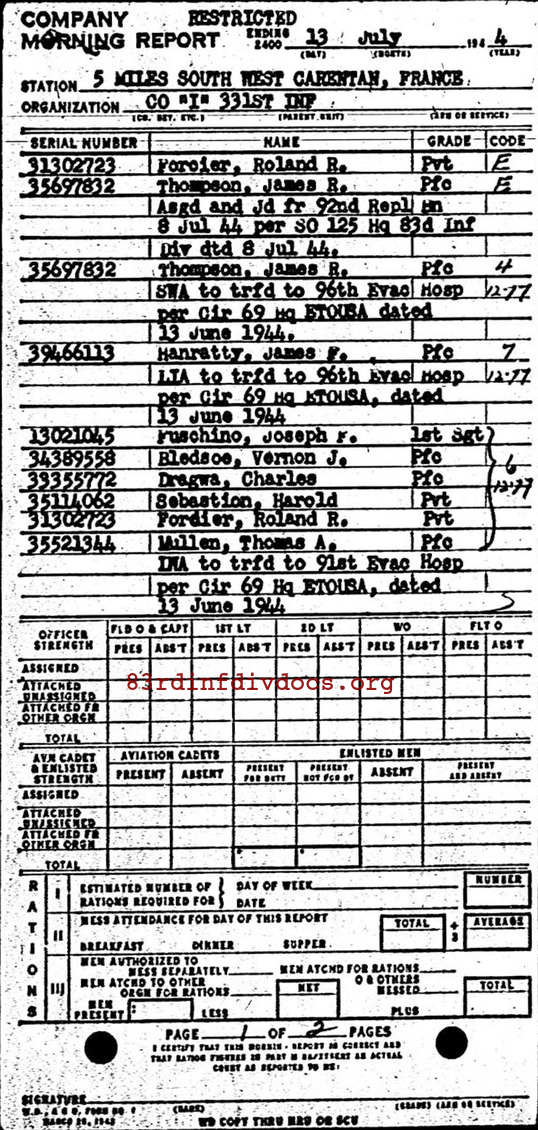 COMPANY RESTRICTED
MORNING REPORT ENDING 2400 13 July 194 4
(DAY) (MONTH) (YEAR)
STATION 5 MILES SOUTH WEST CARENTAN, FRANCE.
ORGANIZATION CO "I" 331ST INF
(CO. DET. ETC.) (PARENT UNIT) (ARM OR SERVICE)
SERIAL NUMBER NAME GRADE CODE
31302723 Forcier, Roland R. Pvt E
35697832 Thompson, James R. Pfc E
Asgd and Jd fr 92nd Repl Bn
8 Jul 44 per SO 125 Hq 83d Inf
Div dtd 8 Jul 44.
35697832 Thompson, James R. Pfc 4
SWA to trfd to 96th Evac Hosp 12-77
per Cir 69 Hq ETOUSA dated
13 June 1944.
39466113 Hanratty, James F. Pfc 7
LIA to trfd to 96th Evac Hosp 12-77
per Cir 69 Hq ETOUSA, dated
13 June 1944
13021045 Fuschino, Joseph F. 1st Sgt
34389558 Bledsoe, Vernon J. Pfc
39355772 Dragwa, Charles Pfc 6
35114062 Sebastion, Harold Pvt 12-77
31302723 Fordier, Roland R. Pvt
35521344 Mullen, Thomas A. Pfc
LWA to trfd to 91st Evac Hosp
per Cir 69 Hq ETOUSA, dated
13 June 1944
OFFICER STRENGTH FLD O & CAPT 1ST LT 2D LT WO FLT O
PRES ABS'T PRES ABS'T PRES ABS'T PRES ABS'T PRES ABS'T
ASSIGNED
ATTACHED UNASSIGNED
83rdinfdivdocs.org
ATTACHED FR OTHER ORGN
TOTAL
AVN CADET & ENLISTED STRENGTH AVIATION CADETS ENLISTED MEN
PRESENT ABSENT PRESENT FOR DUTY PRESENT NOT FOR DY ABSENT PRESENT AND ABSENT
ASSIGNED
ATTACHED UNASSIGNED
ATTACHED FR OTHER ORGN
TOTAL
RATIONS
I ESTIMATED NUMBER OF RATIONS REQUIRED FOR DAY OF WEEK DATE NUMBER
II MESS ATTENDANCE FOR DAY OF THIS REPORT TOTAL ÷ 3 AVERAGE
BREAKFAST DINNER SUPPER
III MEN AUTHORIZED TO MESS SEPARATELY MEN ATCHD FOR RATIONS
MEN ATCHD TO OTHER ORGN FOR RATIONS NET O & OTHERS MESSED TOTAL
MEN PRESENT LESS PLUS
PAGE 1 OF 2 PAGES
I CERTIFY THAT THIS MORNING REPORT IS CORRECT AND
THAT RATION FIGURES IN PART III REPRESENT AN ACTUAL
COUNT AS REPORTED TO ME:
SIGNATURE
W.D., A.G.O. FORM NO. 1 (NAME) (GRADE) (ARM OR SERVICE)
MARCH 1943 WD COPY THRU MRU OR SCU